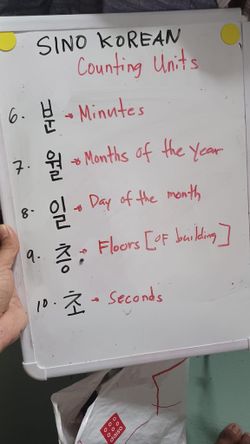 SINO KOREAN
Counting Units
6. 분 → Minutes
7. 월 → Months of the year
8. 일 → Day of the month
9. 층 → Floors [of building]
10. 초 → Seconds